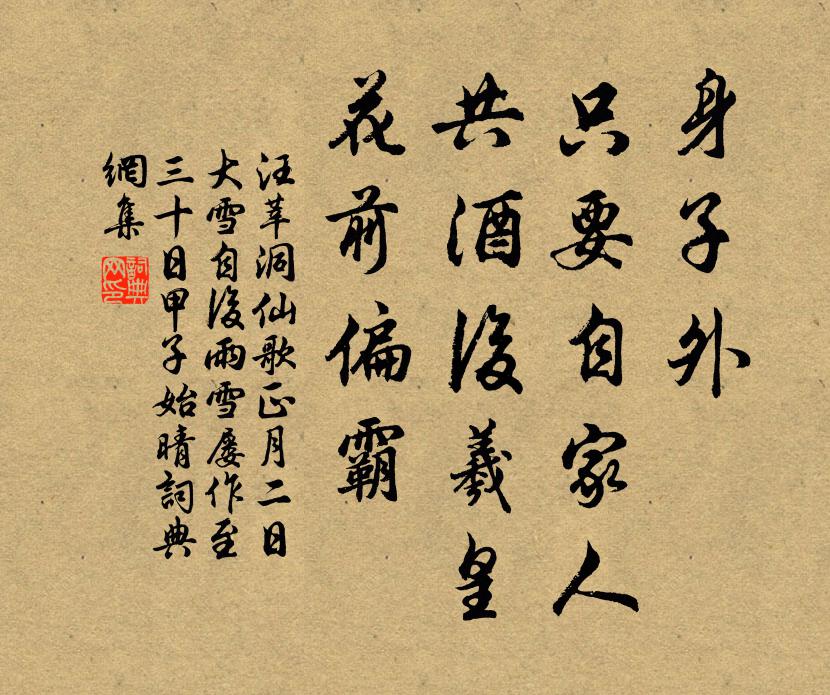 身子外
只要自家人
共酒後羲皇
花前偏霸
汪莘洞仙歌正月二日
大雪自後雨雪屡作至
三十日甲子始晴詞典
網集
詞典網印